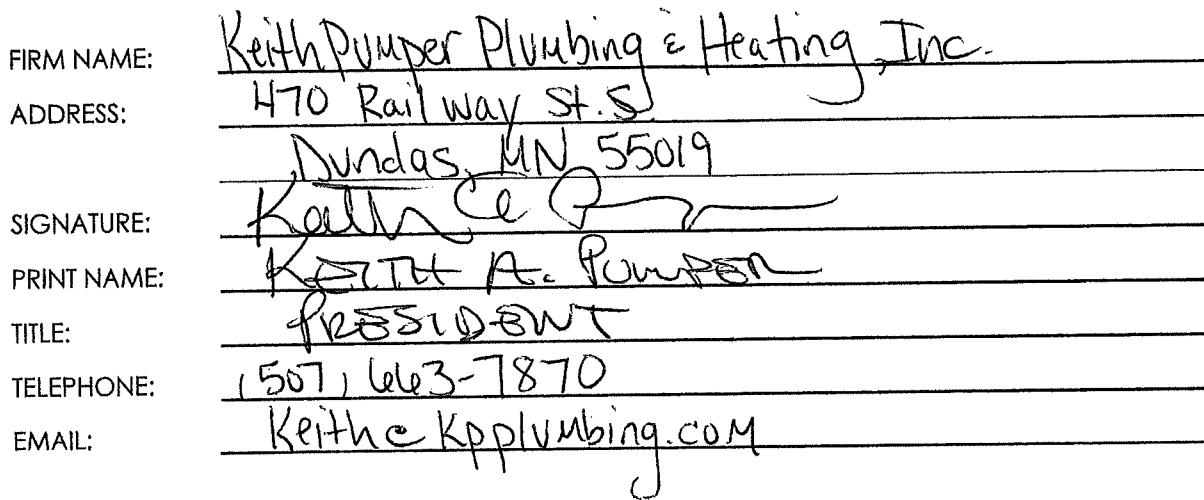 FIRM NAME: Keith Pumper Plumbing & Heating, Inc.
ADDRESS: 470 Railway St. S
Dundas, MN 55019
SIGNATURE: Keith A P
PRINT NAME: KEITH A. PUMPER
TITLE: PRESIDENT
TELEPHONE: (507) 663-7870
EMAIL: Keith@kpplumbing.com